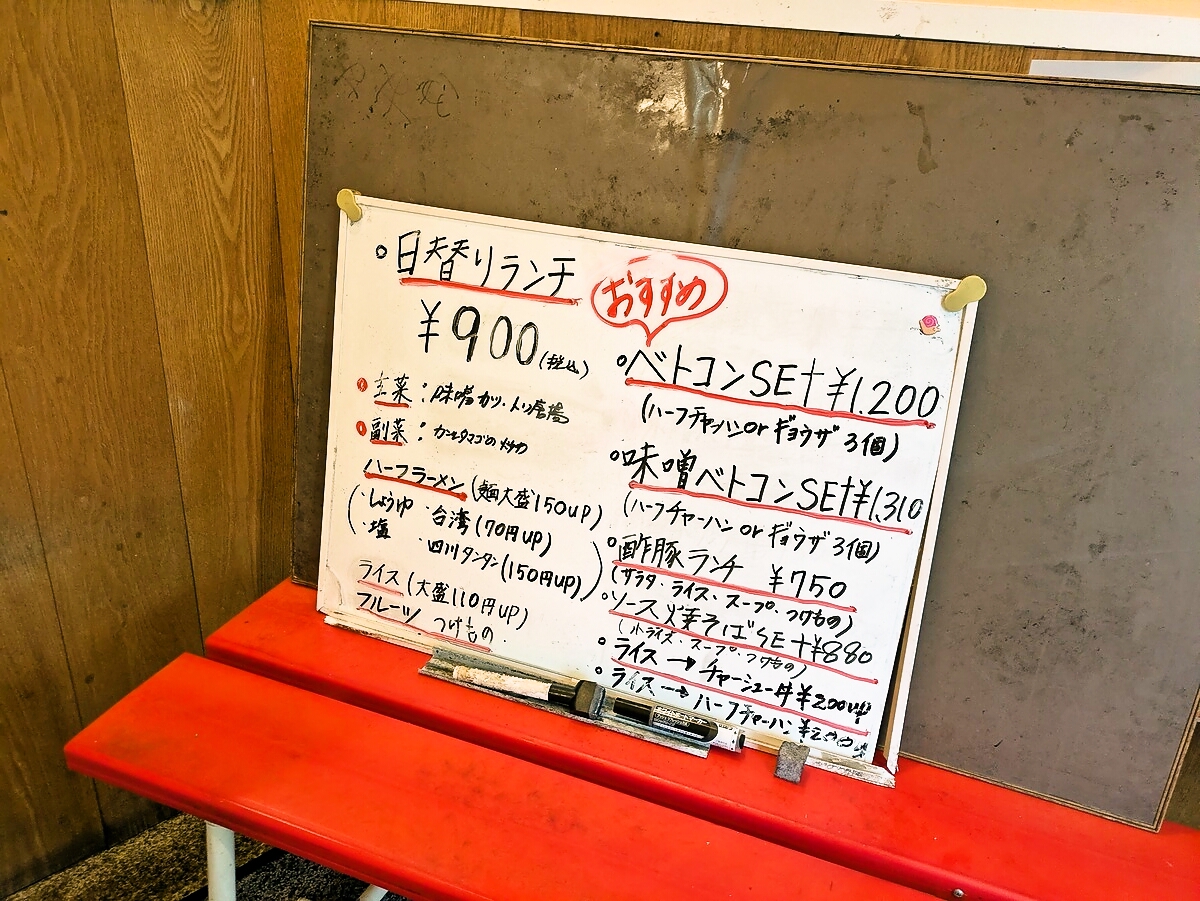 日替りランチ
¥900(税込)
主菜：味噌カツ・トリ唐揚
副菜：カニとタマゴの
ハーフラーメン(麺大盛150up)
・しょうゆ ・台湾(70円up)
・塩 ・四川タンタン(150円up)
ライス(大盛110円up)
フルーツ つけもの
おすすめ
ベトコンSEt ¥1.200
(ハーフチャーハン or ギョウザ3個)
味噌ベトコンSEt ¥1.310
(ハーフチャーハン or ギョウザ3個)
酢豚ランチ ¥750
(サラダ、ライス、スープ、つけもの)
ソース焼そばSEt ¥880
(小ライス、スープ、つけもの)
ライス→チャーシュー丼 ¥200up
ライス→ハーフチャーハン ¥200
ホワイトボードマーカー